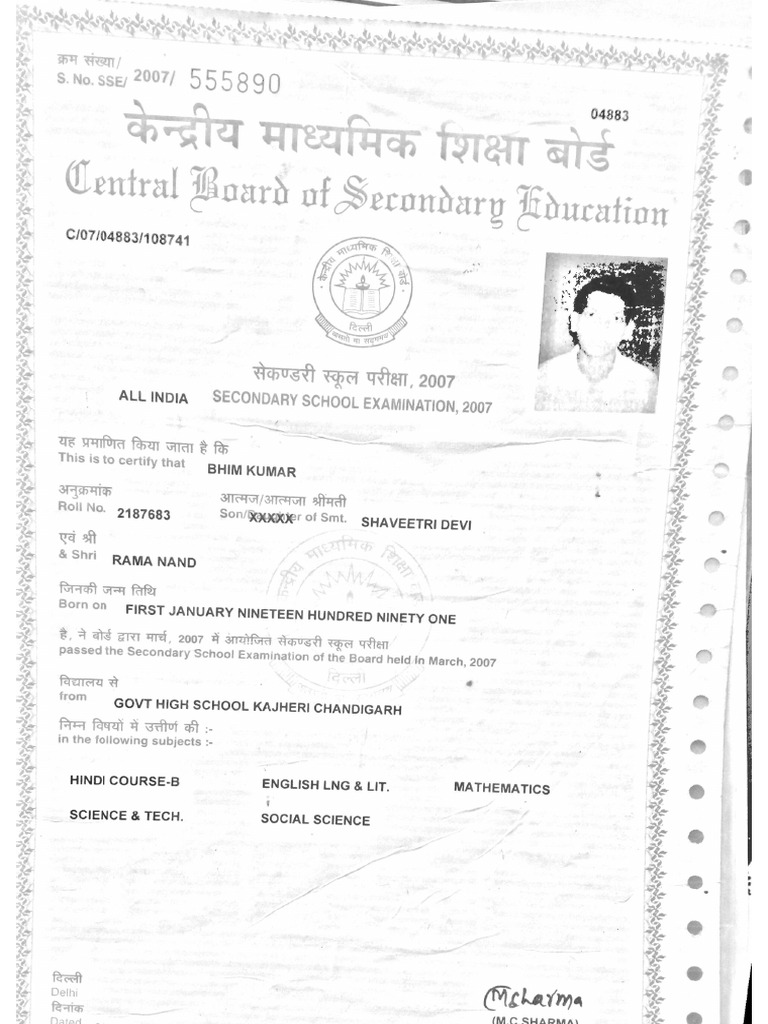 क्रम संख्या/
S. No. SSE/ 2007/ 555890
04883
केन्द्रीय माध्यमिक शिक्षा बोर्ड
Central Board of Secondary Education
C/07/04883/108741
केन्द्रीय माध्यमिक शिक्षा बोर्ड
दिल्ली
सेकण्डरी स्कूल परीक्षा, 2007
ALL INDIA SECONDARY SCHOOL EXAMINATION, 2007
यह प्रमाणित किया जाता है कि
This is to certify that BHIM KUMAR
अनुक्रमांक आत्मज/आत्मजा श्रीमती
Roll No. 2187683 Son/XXXXX of Smt. SHAVEETRI DEVI
एवं श्री
& Shri RAMA NAND
जिनकी जन्म तिथि
Born on FIRST JANUARY NINETEEN HUNDRED NINETY ONE
है, ने बोर्ड द्वारा मार्च, 2007 में आयोजित सेकण्डरी स्कूल परीक्षा
passed the Secondary School Examination of the Board held in March, 2007
विद्यालय से
from GOVT HIGH SCHOOL KAJHERI CHANDIGARH
निम्न विषयों में उत्तीर्ण की :-
in the following subjects :-
HINDI COURSE-B ENGLISH LNG & LIT. MATHEMATICS
SCIENCE & TECH. SOCIAL SCIENCE
दिल्ली
Delhi
दिनांक
Dated
MSharma
(M.C.SHARMA)